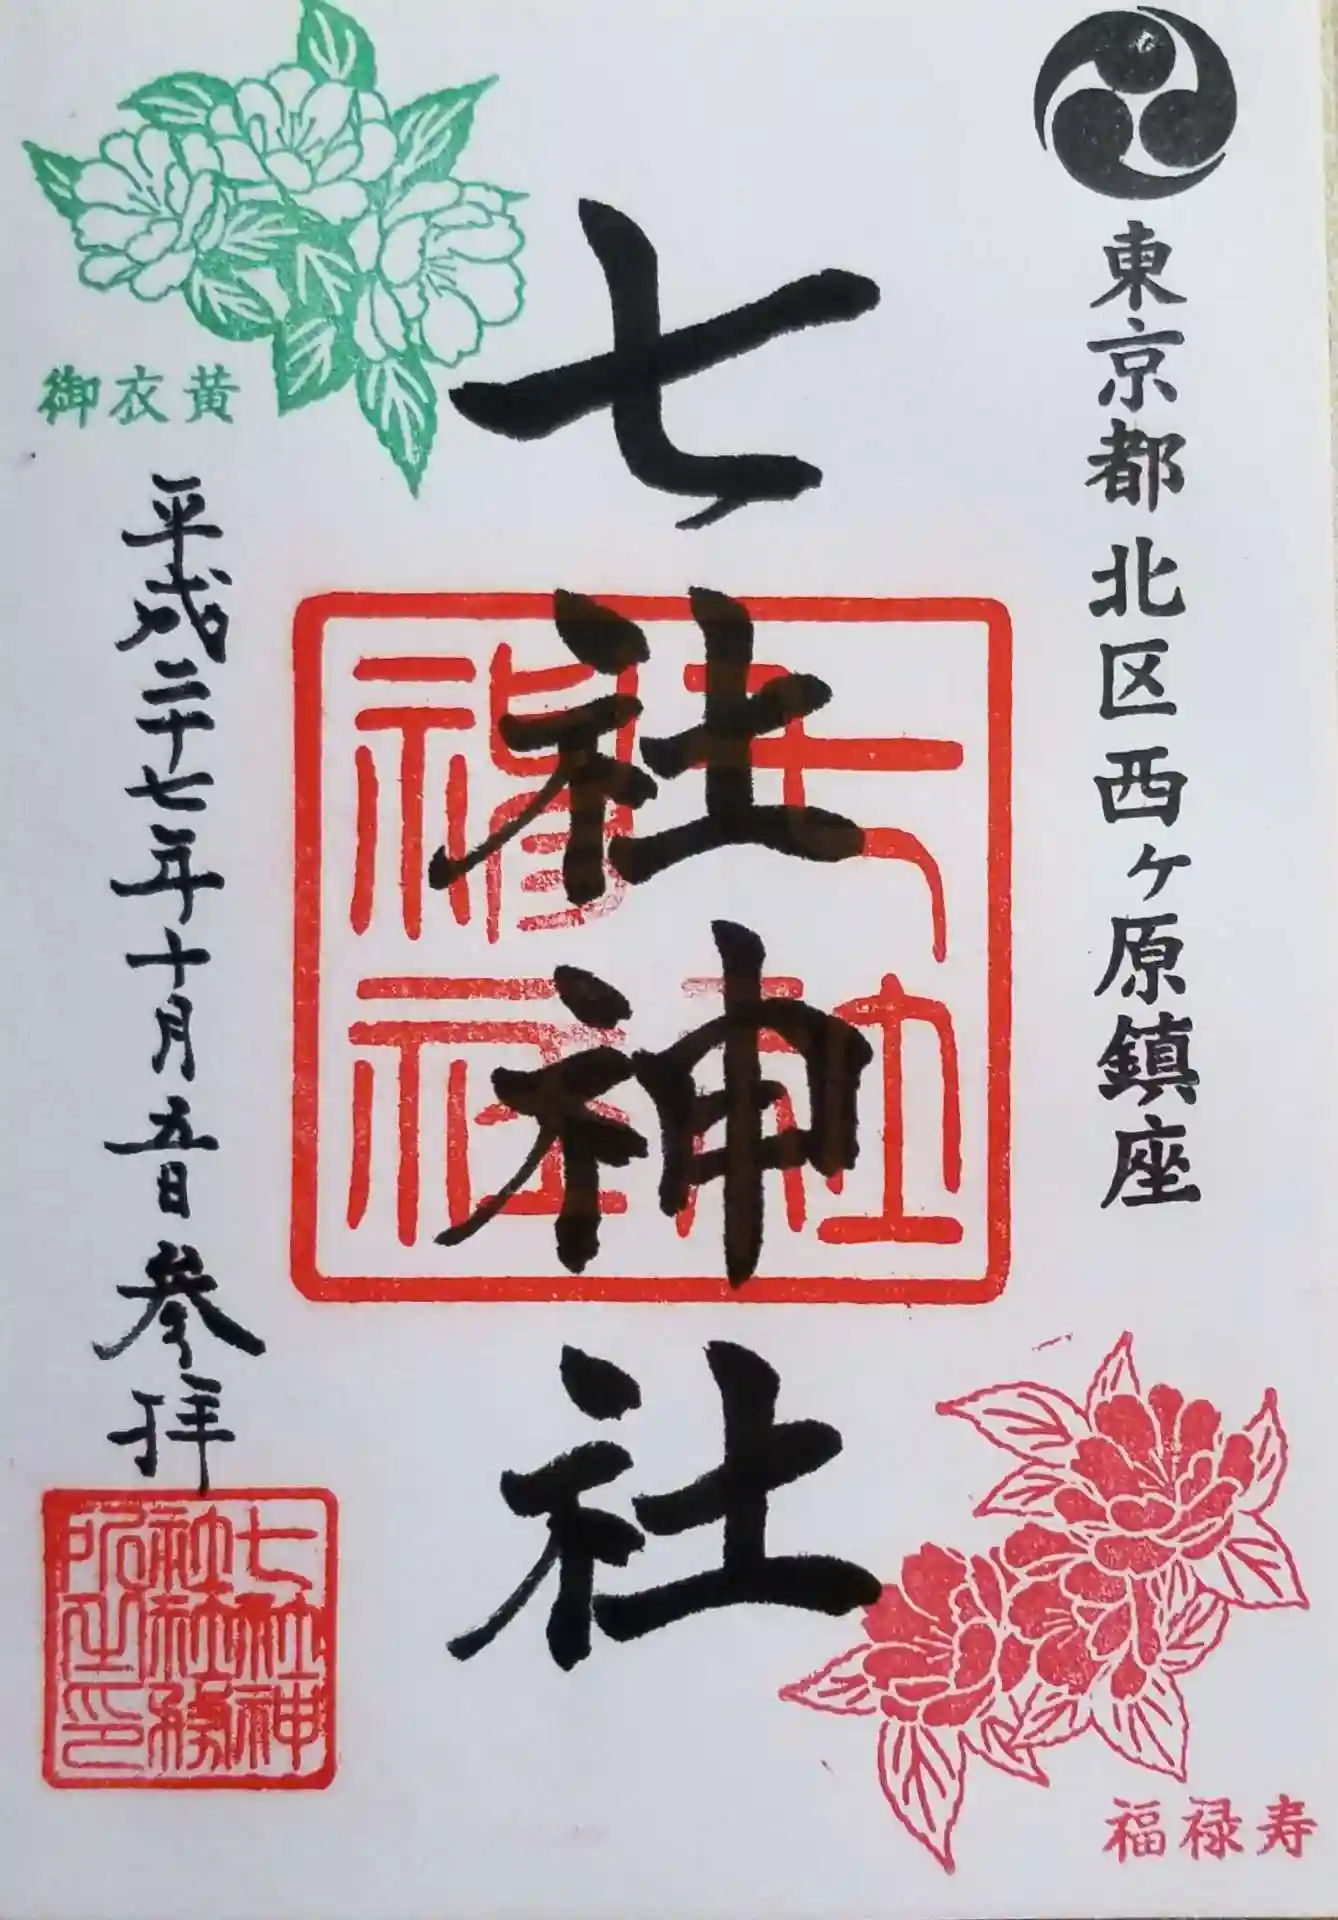 東京都北区西ヶ原鎮座
七社神社
七社神社
御衣黄
平成二十七年十月五日参拝
七社神社社務所之印
福禄寿